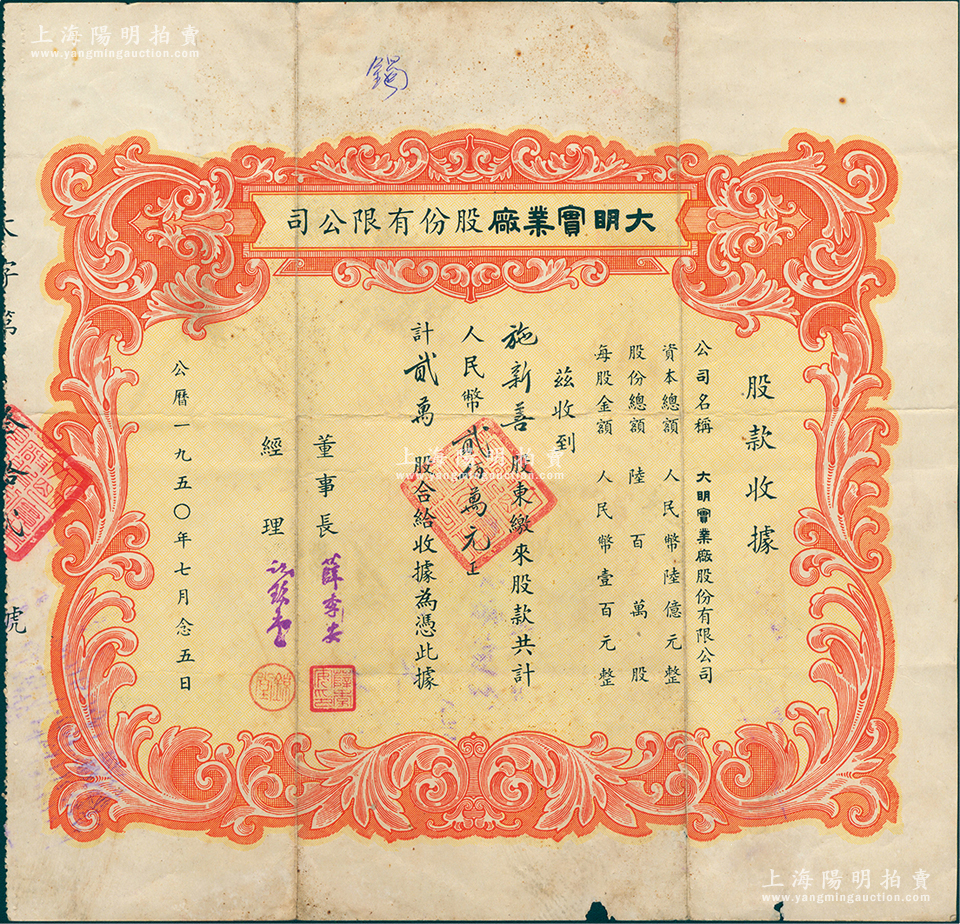 上海陽明拍賣
www.yangmingauction.com
大明實業廠股份有限公司
股款收據
公司名稱 大明實業廠股份有限公司
資本總額 人民幣陸億元整
股份總額 陸百萬股
每股金額 人民幣壹百元整
茲收到
施新善 股東繳來股款共計
人民幣貳佰萬元正
計貳萬 股合給收據為憑此據
董事長 薛季安
經理
公曆一九五〇年七月念五日
字第 拾貳號
上海陽明拍賣
www.yangmingauction.com
上海陽明拍賣
www.yangmingauction.com